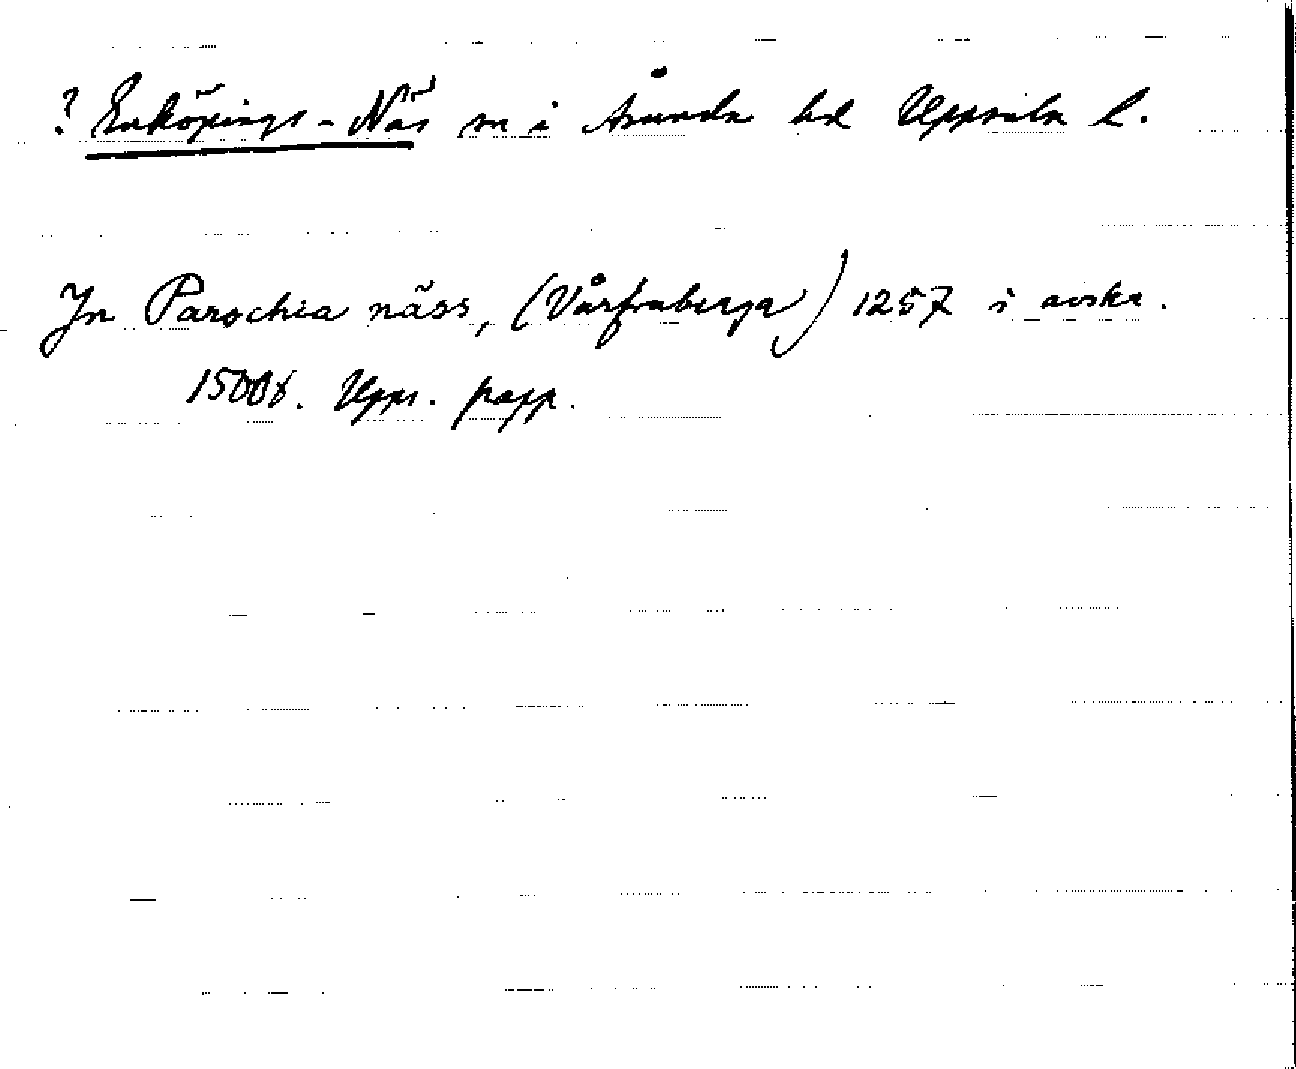 ? Enköpings-Näs sn i Åsunda hd Uppsala l.
In Parochia näss, (Vårfruberga) 1257 i avskr.
Upps. papp.